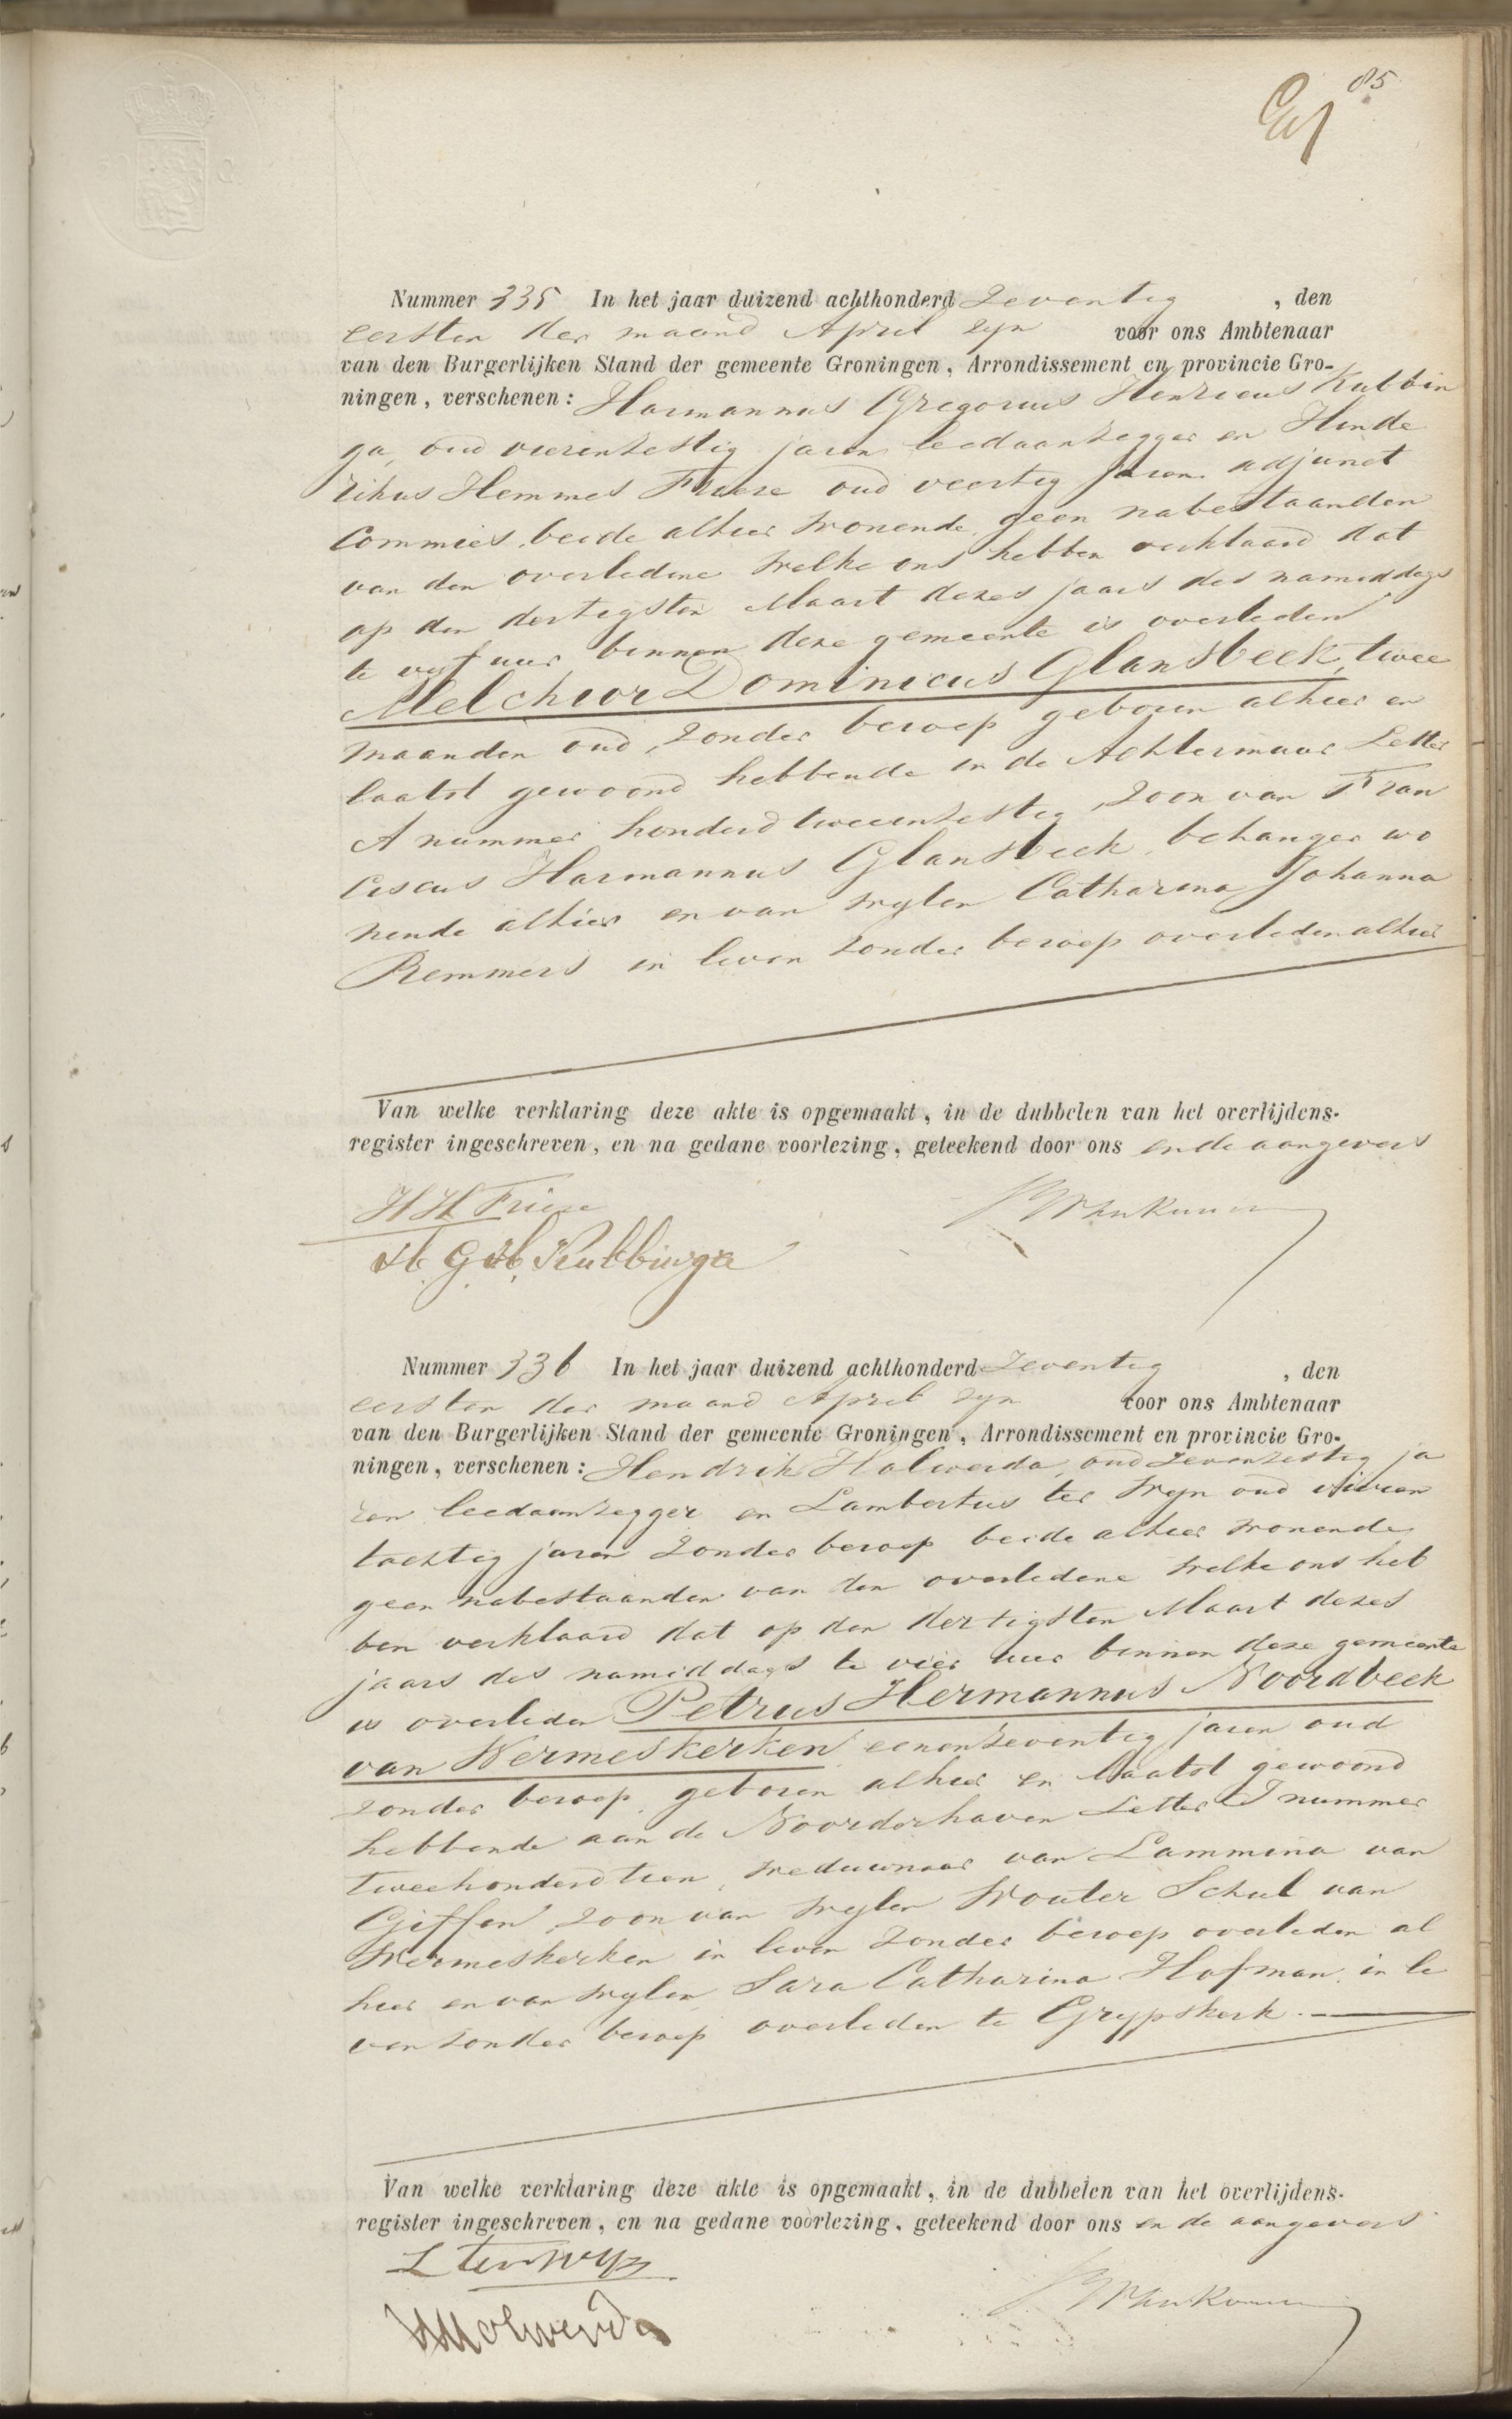 85
Nummer 335 In het jaar duizend achthonderd Zeventig, den
eersten der maand April zyn voor ons Ambtenaar
van den Burgerlijken Stand der gemeente Groningen, Arrondissement en provincie Gro-
ningen, verschenen: Harmannus Gregorius Henricus Kubbin
ga, oud vierenzestig jaren leedaanzegger en Hinde
rikus Hemmes Friese oud veertig jaren adjunct
Commies, beide alhier wonende, geen nabestaanden
van den overledene welke ons hebben verklaard dat
op den dertigsten Maart dezes jaars des namiddags
te vyf uur binnen deze gemeente is overleden
Melchior Dominicus Glansbeek, twee
maanden oud, zonder beroep geboren alhier en
laatst gewoond hebbende in de Achtermuur Letter
A nummer honderd tweeenzestig, zoon van Fran
ciscus Harmannus Glansbeek, behanger wo
nende alhier en van wylen Catharina Johanna
Remmers in leven zonder beroep overleden alhier
Van welke verklaring deze akte is opgemaakt, in de dubbelen van het overlijdens-
register ingeschreven, en na gedane voorlezing, geteekend door ons en de aangevers
H H Friese
H. G. H. Kubbinga
Nummer 336 In het jaar duizend achthonderd Zeventig, den
eersten der maand April zyn voor ons Ambtenaar
van den Burgerlijken Stand der gemeente Groningen, Arrondissement en provincie Gro-
ningen, verschenen: Hendrik Holwerda, oud zevenzestig ja
ren leedaanzegger en Lambertus ter Wyn oud vieren
tachtig jaren zonder beroep beide alhier wonende
geen nabestaanden van den overledene welke ons heb
ben verklaard dat op den dertigsten Maart dezes
jaars des namiddags te vier uur binnen deze gemeente
is overleden Petrus Hermannus Noordbeek
van Wermeskerken eenenzeventig jaren oud
zonder beroep, geboren alhier en laatst gewoond
hebbende aan de Noorderhaven Letter I nummer
tweehonderd tien, weduwnaar van Lammina van
Giffen, zoon van wylen Wouter Schul van
Wermeskerken in leven zonder beroep overleden al
hier en van wylen Sara Catharina Hofman, in le
ven zonder beroep overleden te Grypskerk.
Van welke verklaring deze akte is opgemaakt, in de dubbelen van het overlijdens-
register ingeschreven, en na gedane voorlezing, geteekend door ons en de aangevers
L ter Wyn
H Holwerda